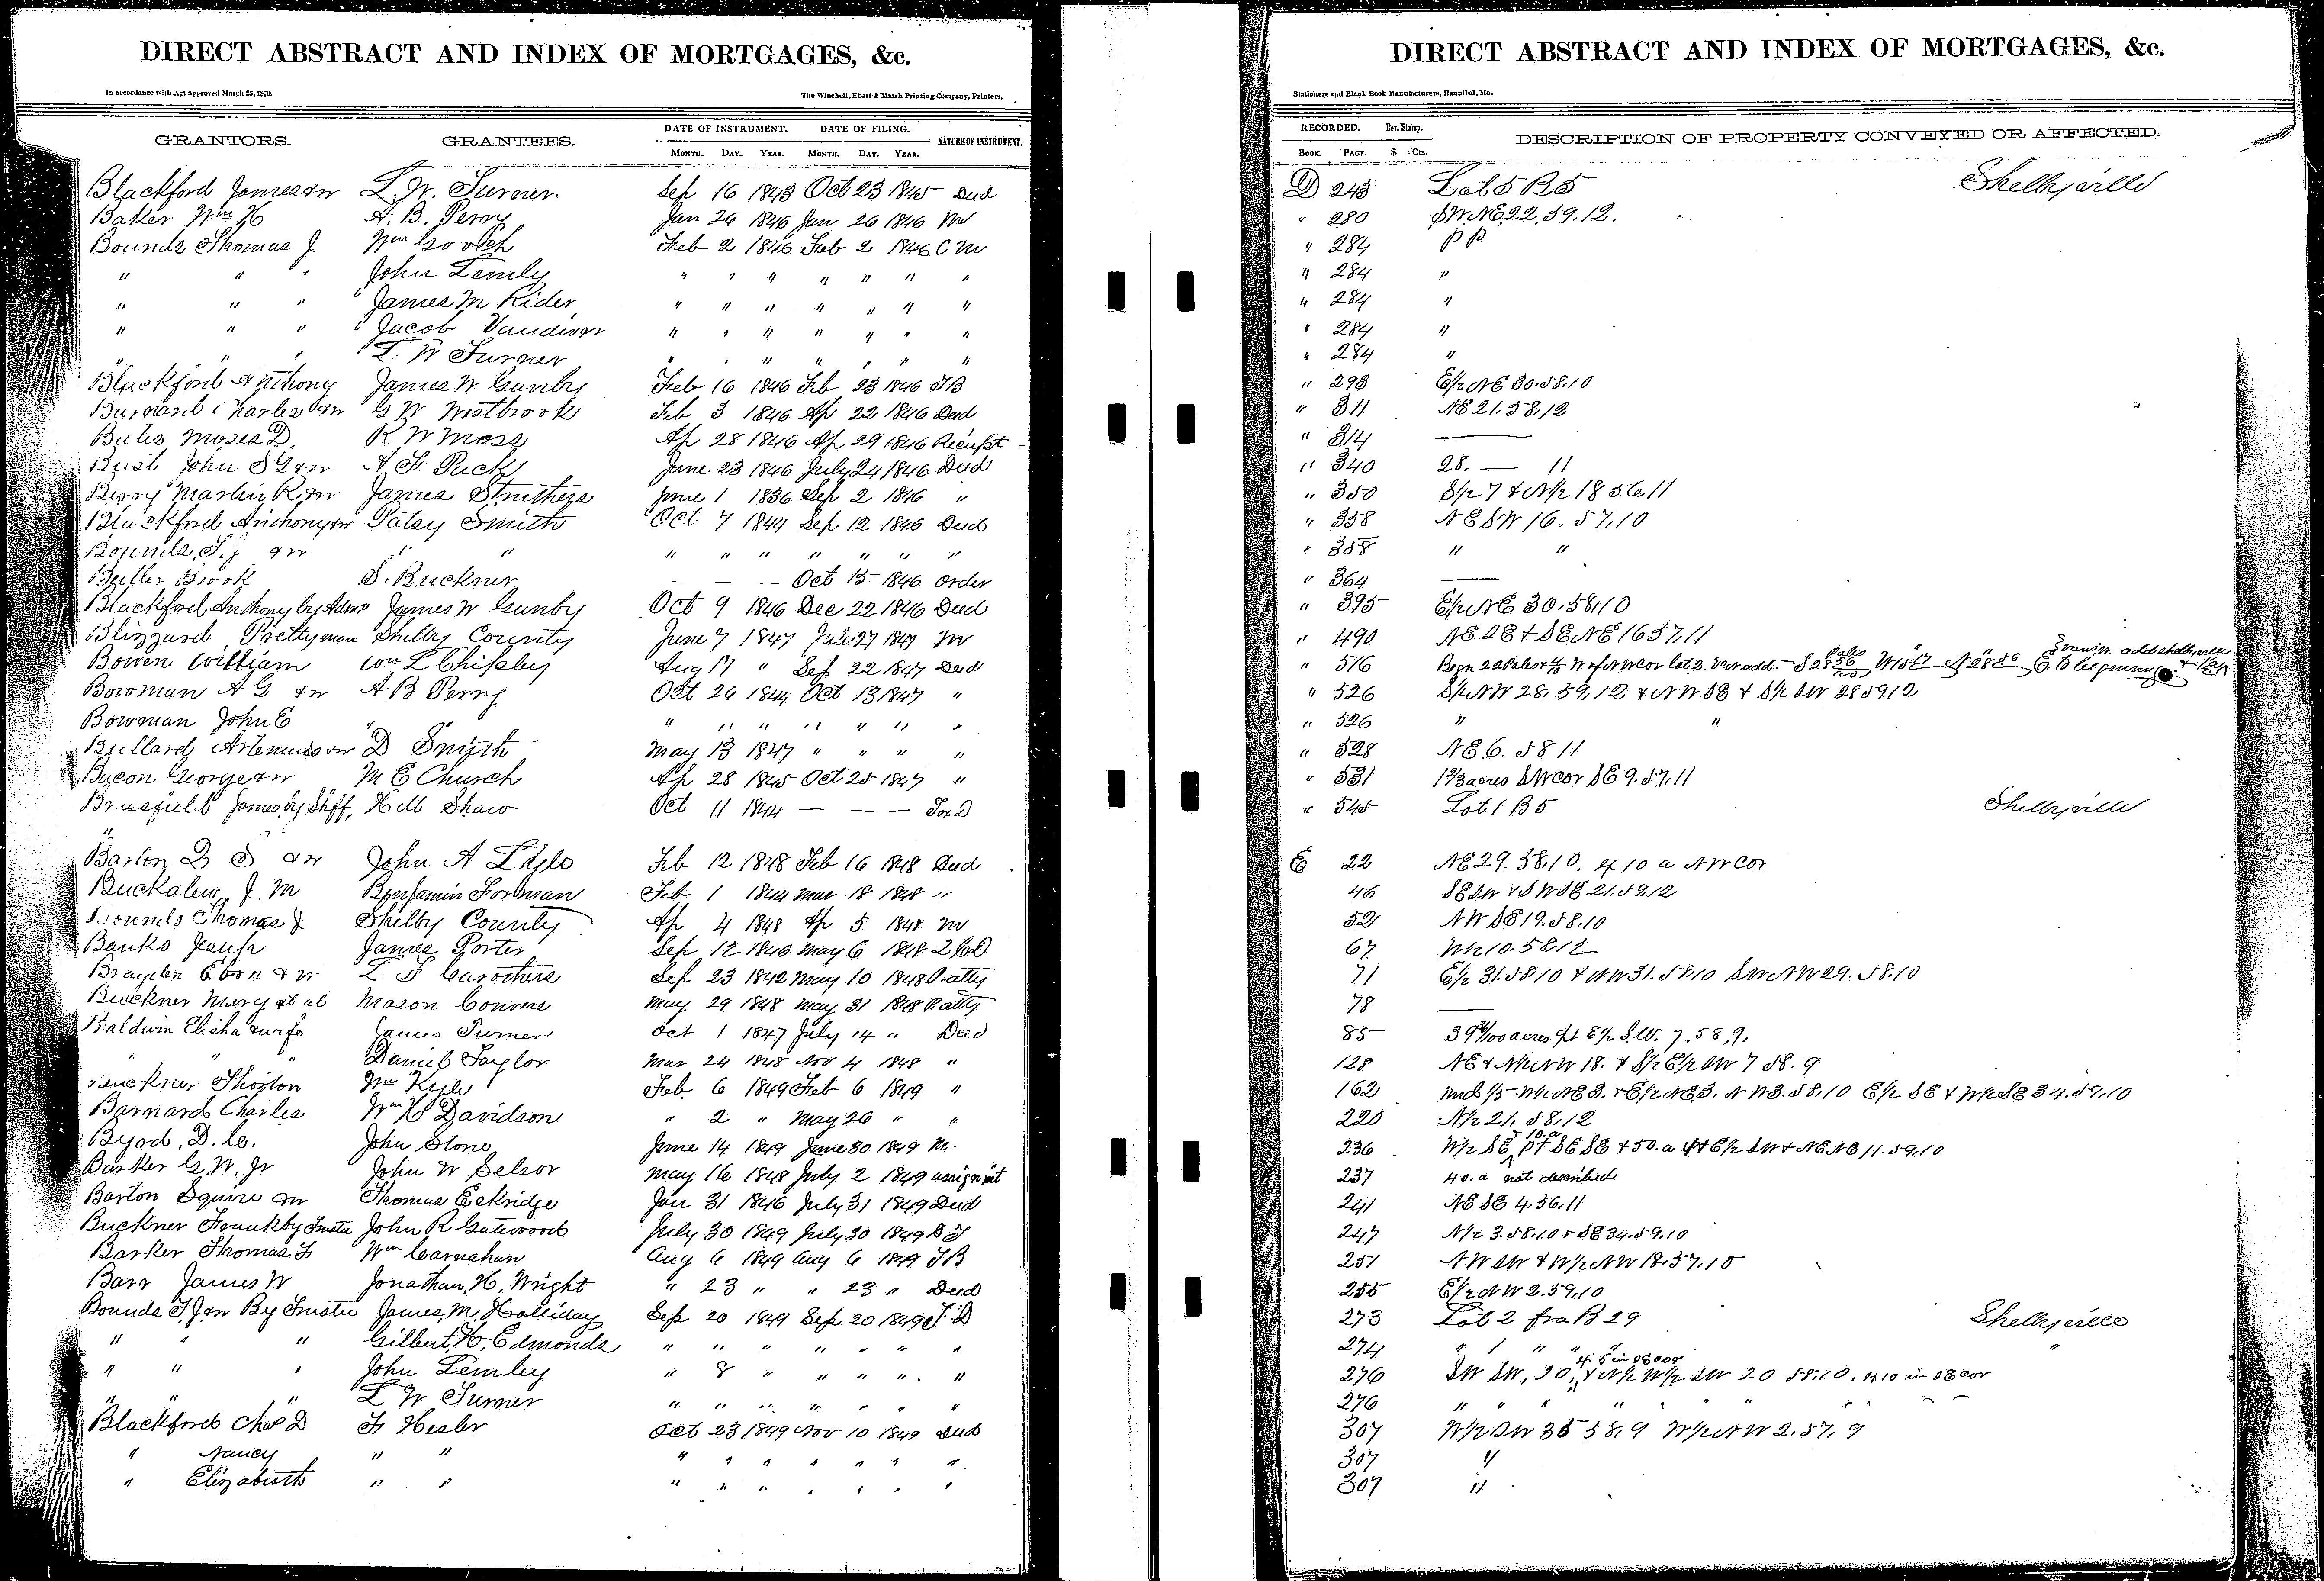 DIRECT ABSTRACT AND INDEX OF MORTGAGES, &c.
In accordance with Act approved March 25, 1870. The Winchell, Ebert & Marsh Printing Company, Printers,
GRANTORS. GRANTEES. DATE OF INSTRUMENT. DATE OF FILING. NATURE OF INSTRUMENT.
MONTH. DAY. YEAR. MONTH. DAY. YEAR.
Blackford James &w L. W. Turner. Sep 16 1843 Oct 23 1845 Deed
Baker Wm H A. B. Perry Jan 26 1846 Jan 26 1846 M
Bounds Thomas J Wm Gooch Feb 2 1846 Feb 2 1846 C M
" " " John Lemly " " " " " " "
" " " James M Rider " " " " " " "
" " " Jacob Vandiver " " " " " " "
" " " L W Turner " " " " " " "
Blackford Anthony James W Gunby Feb 16 1846 Feb 23 1846 T B
Barnard Charles &w G W Westbrook Feb 3 1846 Ap 22 1846 Deed
Bates Moses D. R W Moss Ap 28 1846 Ap 29 1846 Receipt
John S &w A F June 23 1846 July 24 1846 Deed
Berry Martin R. &w James Struthers June 1 1836 Sep 2 1846 "
Blackford Anthony &w Patsy Smith Oct 7 1844 Sep 12 1846 Deed
Bounds, T. J &w " " " " " " " " "
Butler Brook S. Buckner — — — Oct 15 1846 order
Blackford Anthony by Admr James W Gunby Oct 9 1846 Dec 22 1846 Deed
Blizzard Prettyman Shelby County June 7 1847 27 1847 M
Bowen William Wm L Chipley Aug 17 " Sep 22 1847 Deed
Bowman A G &w A B Perry Oct 26 1844 Oct 13 1847 "
Bowman John E " " " " " " " "
Bullard Artemus &w D Smyth May 13 1847 " " " "
Bacon George &w M E Church Ap 28 1845 Oct 25 1847 "
James by Shff, H M Shaw Oct 11 1844 — — — Tax D
Barton Q S &w John A Lyle Feb 12 1848 Feb 16 1848 Deed
Buckalew J. M Benjamin Forman Feb 1 1844 Mar 18 1848 "
Bounds Thomas J Shelby County Ap 4 1848 Ap 5 1848 M
Banks James Porter Sep 12 1846 May 6 1848
Eb &w L S Carothers Sep 23 1842 May 10 1848 P. atty
Buckner Mary et al Mason Convers May 29 1848 May 31 1848 P atty
Baldwin Elisha & wife James Turner Oct 1 1847 July 14 " Deed
" " " Daniel Taylor Mar 24 1848 Nov 4 1848 "
Buckner Wm Kyle Feb. 6 1849 Feb 6 1849 "
Barnard Charles Wm H Davidson " 2 " May 26 " "
Byrd, D. C. John Stone June 14 1849 June 30 1849 M.
Barker G. W. Jr John W Selsor May 16 1848 July 2 1849 assignmt
Barton Squire &w Thomas Eskridge Jan 31 1846 July 31 1849 Deed
Buckner Frank by Trustee John R Gatewood July 30 1849 July 30 1849 D T
Barker Thomas F Wm Carnahan Aug 6 1849 Aug 6 1849 T B
Barr James W Jonathan, H. Wright " 23 " " 23 " Deed
Bounds T J &w By Trustee James, M, Holliday Sep 20 1849 Sep 20 1849 T. D
" " " Gilbert, H, Edmonds " " " " " " "
" " " John Lemley " 8 " " " " "
" " " L W Turner " " " " " " "
Blackford Chas D F Hesler Oct 23 1849 Nov 10 1849 Deed
" Nancy " " " " " " " " "
" Elizabeth " " " " " " " " "
DIRECT ABSTRACT AND INDEX OF MORTGAGES, &c.
Stationers and Blank Book Manufacturers, Hannibal, Mo.
RECORDED. Rev. Stamp. DESCRIPTION OF PROPERTY CONVEYED OR AFFECTED.
BOOK. PAGE. $ Cts.
D 243 Lot 5 B 5 Shelbyville
" 280 SW NE 22. 59. 12.
" 284 P P
" 284 "
" 284 "
" 284 "
" 284 "
" 298 E½ NE 30. 58. 10
" 311 NE 21. 58. 12
" 314 —
" 340 28. — 11
" 350 S½ 7 & N½ 18 56 11
" 358 NE SW 16. 57. 10
" 358 " "
" 364 —
" 395 E½ NE 30. 58. 10
" 490 NE SE & SE NE 16 57. 11
" 516 Begn
" 526 S½ NW 28. 59, 12 & NW SE & S½ SW 28 59 12
" 526 " "
" 528 NE. 6. 58 11
" 531 acres SW cor SE 9. 57. 11
" 545 Lot 1 B 5 Shelbyville
E 22 NE 29. 58. 10. ex 10 a NW cor
46 SE SW & SW SE 21. 59. 12
52 NW SE 19. 58. 10
67 W½ 10. 58 12
71 E½ 31. 58 10 & NW 31. 58. 10 SW NW 29. 58. 10
78 —
85 acres pt E½ S.W. 7. 58, 9.
128 NE & N½ NW 18. & S½ E½ SW 7 58. 9
162 und 1/5 W½ NE 3. & E½ NE 3. N W 3. 58, 10 E½ SE & W½ SE 34. 59. 10
220 N½ 21. 58. 12
236 W½ SE & 10. a pt SE SE & 50. a pt E½ SW & NE NE 11. 59. 10
237 40. a not described
241 NE SE 4. 56. 11
247 N½ 3. 58. 10 & SE 34. 59. 10
251 NW SW & W½ NW 18. 57. 10
255 E½ NW 2. 59, 10
273 Lot 2 fra B 29 Shelbyville
274 " 1 " " " "
276 SW SW, 20, ex 5 in SE cor & N½ W½ SW 20 58. 10. ex 10 in SE cor
276 " " " " " "
307 W½ SW 35 58, 9 W½ NW 2. 57, 9
307 "
307 "